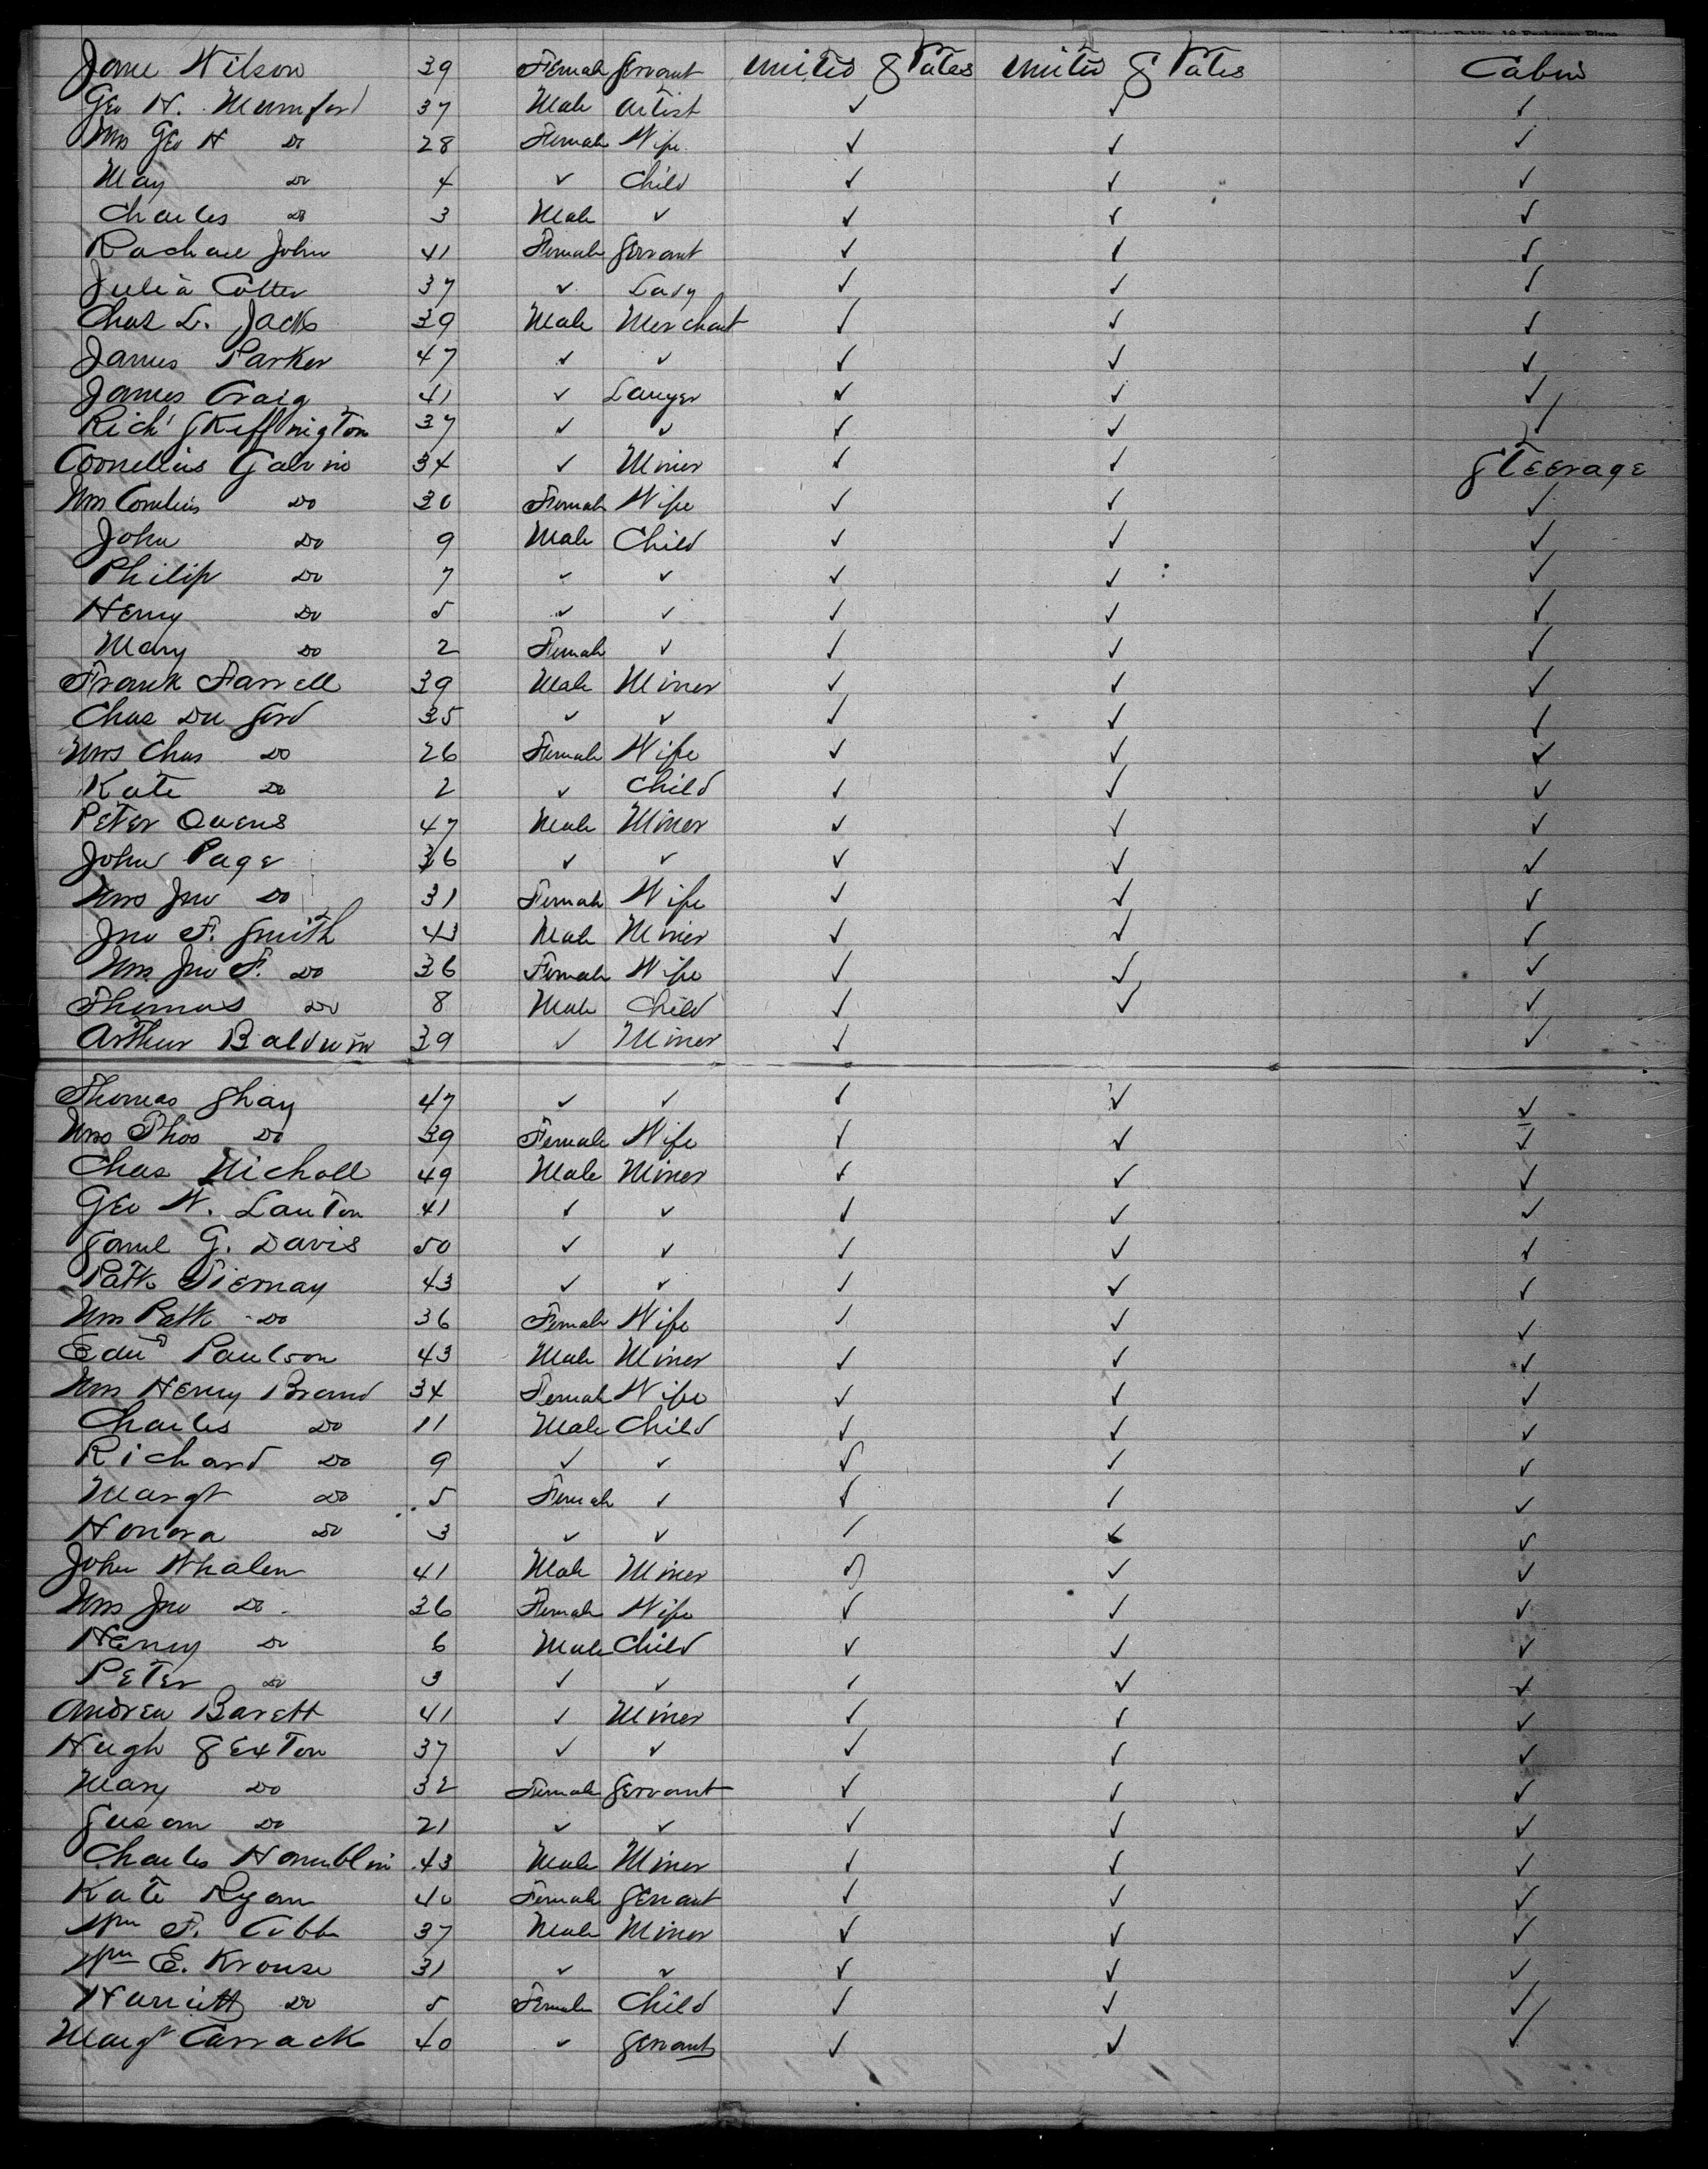 Jane Wilson 39 Female Servant United States United States Cabin
Geo H. Mumford 37 Male Artist ✓ ✓ ✓
Mrs Geo H Do 28 Female Wife ✓ ✓ ✓
May Do 4 ✓ Child ✓ ✓ ✓
Charles Do 3 Male ✓ ✓ ✓ ✓
Rachael John 41 Female Servant ✓ ✓ ✓
Julia Cotter 37 ✓ Lady ✓ ✓ ✓
Chas L. Jacks 39 Male Merchant ✓ ✓ ✓
James Parker 47 ✓ ✓ ✓ ✓ ✓
James Craig 41 ✓ Lawyer ✓ ✓ ✓
Richd Skeffington 37 ✓ ✓ ✓ ✓ ✓
Cornelius Galvin 34 ✓ Miner ✓ ✓ Steerage
Mrs Cornelius Do 30 Female Wife ✓ ✓ ✓
John Do 9 Male Child ✓ ✓ ✓
Philip Do 7 ✓ ✓ ✓ ✓ ✓
Henry Do 5 ✓ ✓ ✓ ✓ ✓
Mary Do 2 Female ✓ ✓ ✓ ✓
Frank Farrell 39 Male Miner ✓ ✓ ✓
Chas Du ford 35 ✓ ✓ ✓ ✓ ✓
Mrs Chas Do 26 Female Wife ✓ ✓ ✓
Kate Do 2 ✓ Child ✓ ✓ ✓
Peter Owens 47 Male Miner ✓ ✓ ✓
John Page 36 ✓ ✓ ✓ ✓ ✓
Mrs Jno Do 31 Female Wife ✓ ✓ ✓
Jno F. Smith 43 Male Miner ✓ ✓ ✓
Mrs Jno F. Do 36 Female Wife ✓ ✓ ✓
Thomas Do 8 Male Child ✓ ✓ ✓
Arthur Baldwin 39 ✓ Miner ✓ ✓
Thomas Shay 47 ✓ ✓ ✓ ✓ ✓
Mrs Thos Do 39 Female Wife ✓ ✓ ✓
Chas Nicholl 49 Male Miner ✓ ✓ ✓
Geo W. Lauton 41 ✓ ✓ ✓ ✓ ✓
Saml G. Davis 50 ✓ ✓ ✓ ✓ ✓
Patk Tiernay 43 ✓ ✓ ✓ ✓ ✓
Mrs Patk Do 36 Female Wife ✓ ✓ ✓
Edwd Paulson 43 Male Miner ✓ ✓ ✓
Mrs Henry Brand 34 Female Wife ✓ ✓ ✓
Charles Do 11 Male Child ✓ ✓ ✓
Richard Do 9 ✓ ✓ ✓ ✓ ✓
Margt Do 5 Female ✓ ✓ ✓ ✓
Honora Do 3 ✓ ✓ ✓ ✓ ✓
John Whalen 41 Male Miner ✓ ✓ ✓
Mrs Jno Do 36 Female Wife ✓ ✓ ✓
Henry Do 6 Male Child ✓ ✓ ✓
Peter Do 3 ✓ ✓ ✓ ✓ ✓
Andrew Barett 41 ✓ Miner ✓ ✓ ✓
Hugh Sexton 37 ✓ ✓ ✓ ✓ ✓
Mary Do 32 Female Servant ✓ ✓ ✓
Susan Do 21 ✓ ✓ ✓ ✓ ✓
Charles 43 Male Miner ✓ ✓ ✓
Kate Ryan 40 Female Servant ✓ ✓ ✓
Wm F. Cobb 37 Male Miner ✓ ✓ ✓
Wm E. Krouse 31 ✓ ✓ ✓ ✓ ✓
Harriett Do 5 Female Child ✓ ✓ ✓
Margt Carrack 40 ✓ Servant ✓ ✓ ✓